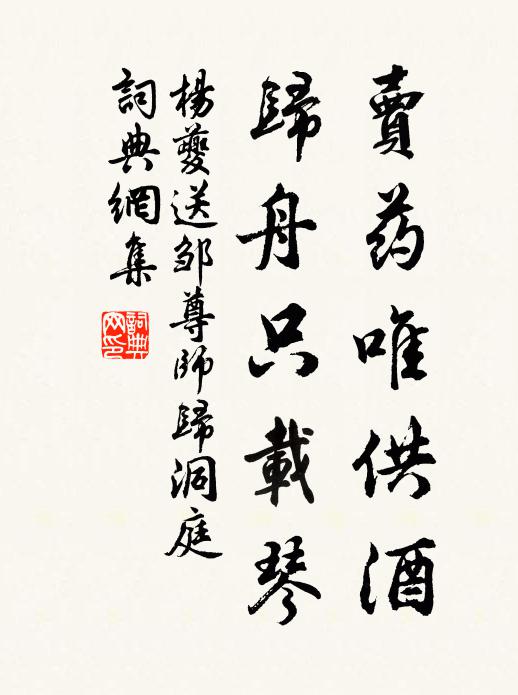 賣药唯供酒
歸舟只載琴
楊夔送邹尊師歸洞庭
詞典網集
詞典网印